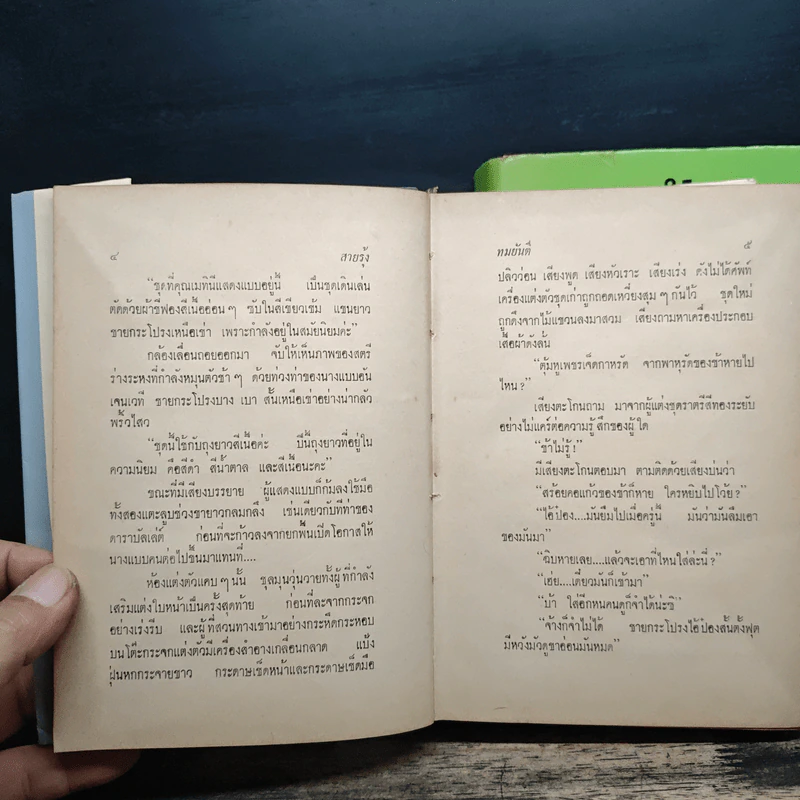 ๔ สายรุ้ง
“ชุดที่คุณเมทินีแสดงแบบอยู่นี้ เป็นชุดเดินเล่น
ตัดด้วยผ้าชีฟองสีเนื้ออ่อน ๆ ซับในสีเขียวเข้ม แขนยาว
ชายกระโปรงเหนือเข่า เพราะกำลังอยู่ในสมัยนิยมค่ะ”
กล้องเลื่อนถอยออกมา จับให้เห็นภาพของสตรี
ร่างระหงที่กำลังหมุนตัวช้า ๆ ด้วยท่วงท่าของนางแบบอัน
เจนเวที ชายกระโปรงบาง เบา สั้นเหนือเข่าอย่างน่ากลัว
พริ้วไสว
“ชุดนี้ใช้กับถุงยาวสีเนื้อค่ะ ปีนี้ถุงยาวที่อยู่ใน
ความนิยม คือสีดำ สีน้ำตาล และสีเนื้อนะคะ”
ขณะที่มีเสียงบรรยาย ผู้แสดงแบบก็ก้มลงใช้มือ
ทั้งสองแตะลูบช่วงขายาวกลมกลึง เช่นเดียวกับทีท่าของ
ดาราบัลเล่ต์ ก่อนที่จะก้าวลงจากยกพื้นเปิดโอกาสให้
นางแบบคนต่อไปขึ้นมาแทนที่....
ห้องแต่งตัวแคบ ๆ นั้น ชุลมุนวุ่นวายทั้งผู้ที่กำลัง
เสริมแต่งใบหน้าเป็นครั้งสุดท้าย ก่อนที่ละจากกระจก
อย่างเร่งรีบ และผู้ที่สวนทางเข้ามาอย่างกระหืดกระหอบ
บนโต๊ะกระจกแต่งตัวมีเครื่องสำอางเกลื่อนกลาด แป้ง
ฝุ่นหกกระจายขาว กระดาษเช็ดหน้าและกระดาษเช็ดมือ
ทมยันตี ๕
ปลิวว่อน เสียงพูด เสียงหัวเราะ เสียงเร่ง ดังไม่ได้ศัพท์
เครื่องแต่งตัวชุดเก่าถูกถอดเหวี่ยงสุม ๆ กันไว้ ชุดใหม่
ถูกดึงจากไม้แขวนลงมาสวม เสียงถามหาเครื่องประกอบ
เสื้อผ้าดังลั่น
“ตุ้มหูเพชรเจ็ดกาหรัด จากพาหุรัดของข้าหายไป
ไหน?”
เสียงตะโกนถาม มาจากผู้แต่งชุดราตรีสีทองระยับ
อย่างไม่แคร์ต่อความรู้สึกของผู้ใด
“ข้าไม่รู้!”
มีเสียงตะโกนตอบมา ตามติดด้วยเสียงบ่นว่า
“สร้อยคอแก้วของข้าก็หาย ใครหยิบไปโว้ย?”
“ไอ้ป๋อง....มันยืมไปเมื่อครู่นี้ มันว่ามันลืมเอา
ของมันมา”
“ฉิบหายเลย....แล้วจะเอาที่ไหนใส่ล่ะนี่?”
“เฮ่ย....เดี๋ยวมันก็เข้ามา”
“บ้า ใส่อีกหนคนดูก็จำได้น่ะซิ”
“จ้างก็จำไม่ได้ ชายกระโปรงไอ้ป๋องสั้นตั้งฟุต
มีหวังมัวดูขาอ่อนมันหมด”